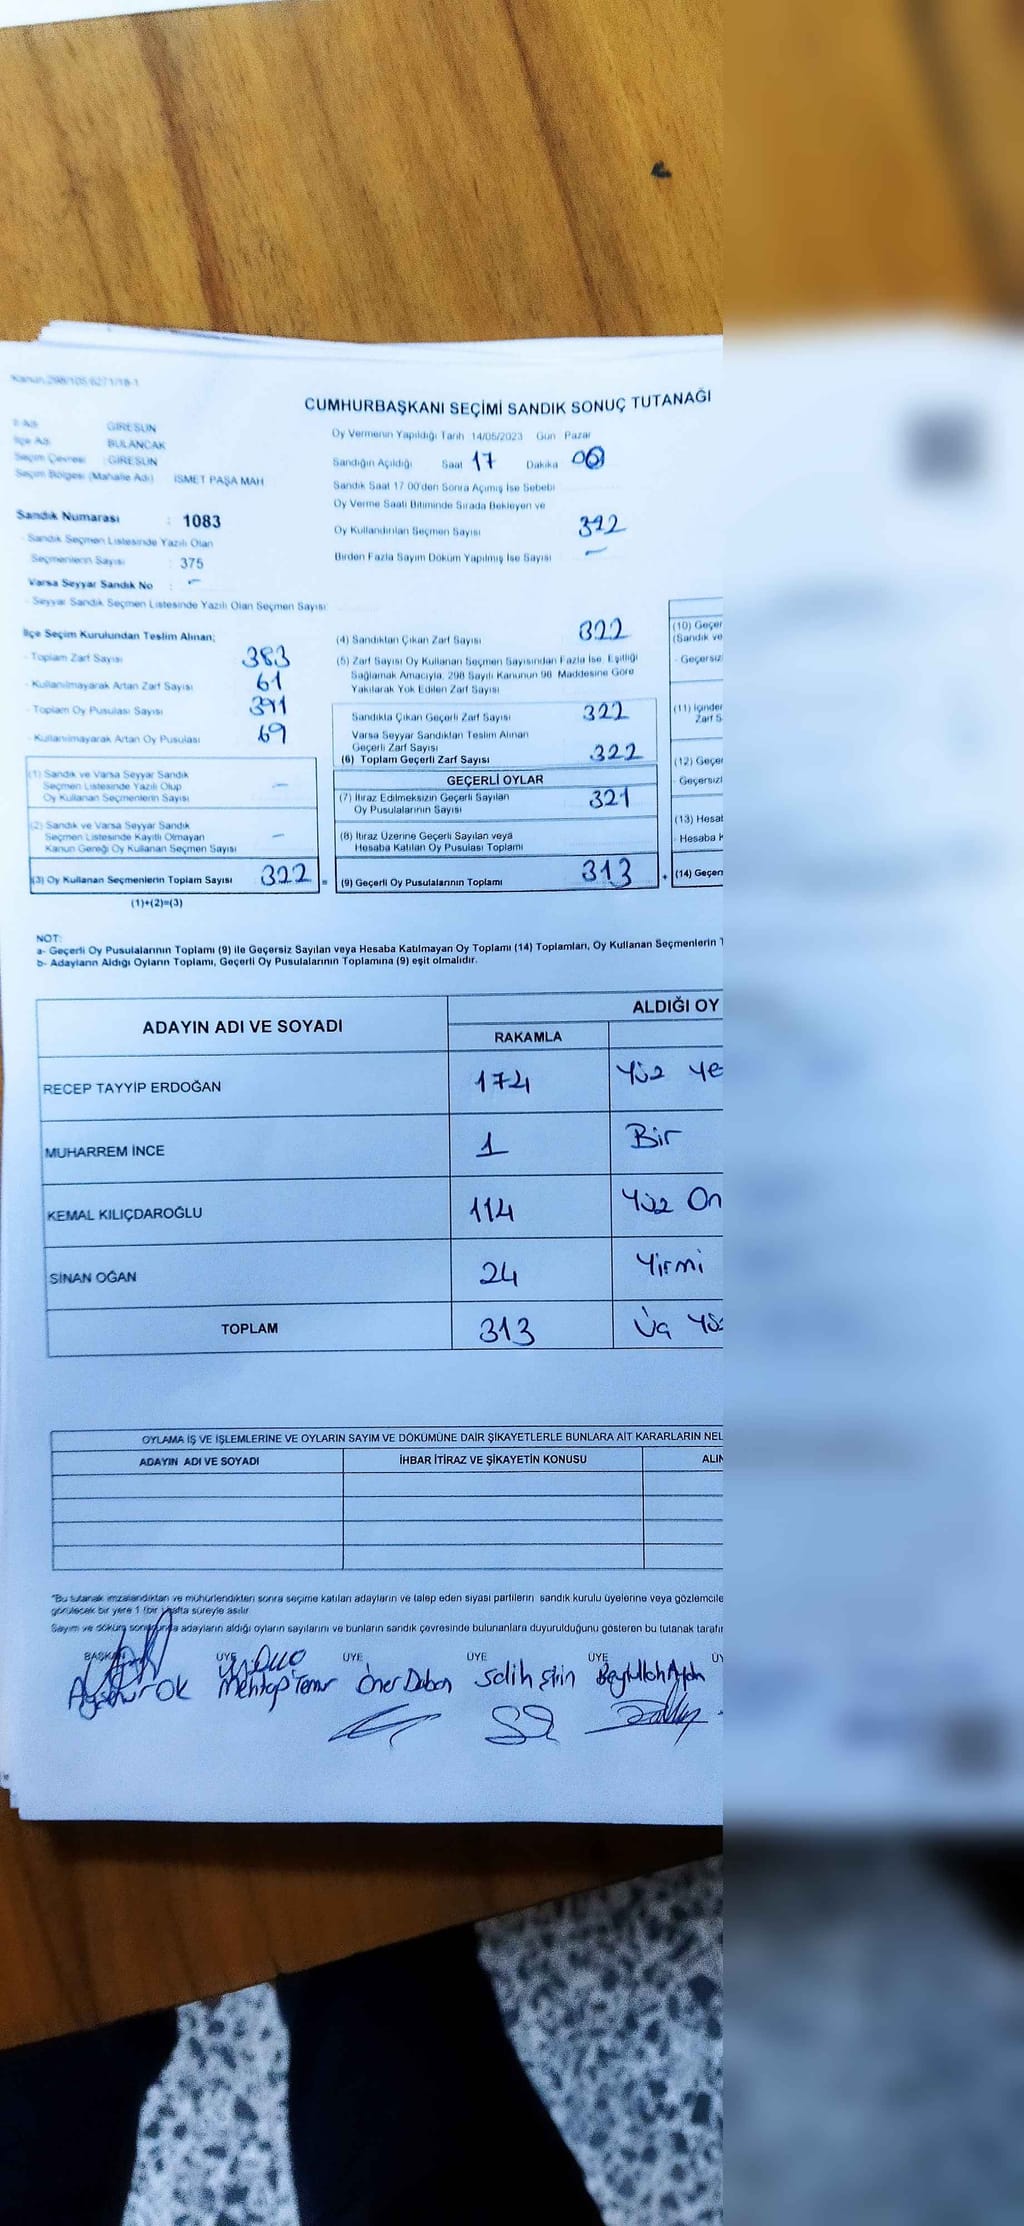 Kanun:298/105 6271/18-1
CUMHURBAŞKANI SEÇİMİ SANDIK SONUÇ TUTANAĞI
İl Adı GİRESUN
İlçe Adı BULANCAK
Seçim Çevresi : GİRESUN
Seçim Bölgesi (Mahalle Adı) İSMET PAŞA MAH
Sandık Numarası : 1083
Sandık Seçmen Listesinde Yazılı Olan
Seçmenlerin Sayısı : 375
Varsa Seyyar Sandık No : -
Seyyar Sandık Seçmen Listesinde Yazılı Olan Seçmen Sayısı
Oy Vermenin Yapıldığı Tarih 14/05/2023 Gün Pazar
Sandığın Açıldığı Saat 17 Dakika 00
Sandık Saat 17.00'den Sonra Açımış İse Sebebi
Oy Verme Saati Bitiminde Sırada Bekleyen ve
Oy Kullandırılan Seçmen Sayısı 322
Birden Fazla Sayım Döküm Yapılmış İse Sayısı -
İlçe Seçim Kurulundan Teslim Alınan;
- Toplam Zarf Sayısı 383
- Kullanılmayarak Artan Zarf Sayısı 61
- Toplam Oy Pusulası Sayısı 391
- Kullanılmayarak Artan Oy Pusulası 69
(1) Sandık ve Varsa Seyyar Sandık
Seçmen Listesinde Yazılı Olup
Oy Kullanan Seçmenlerin Sayısı -
(2) Sandık ve Varsa Seyyar Sandık
Seçmen Listesinde Kayıtlı Olmayan
Kanun Gereği Oy Kullanan Seçmen Sayısı -
(3) Oy Kullanan Seçmenlerin Toplam Sayısı 322 =
(1)+(2)=(3)
(4) Sandıktan Çıkan Zarf Sayısı 322
(5) Zarf Sayısı Oy Kullanan Seçmen Sayısından Fazla İse, Eşitliği
Sağlamak Amacıyla, 298 Sayılı Kanunun 98. Maddesine Göre
Yakılarak Yok Edilen Zarf Sayısı
Sandıkta Çıkan Geçerli Zarf Sayısı 322
Varsa Seyyar Sandıktan Teslim Alınan
Geçerli Zarf Sayısı
(6) Toplam Geçerli Zarf Sayısı 322
GEÇERLİ OYLAR
(7) İtiraz Edilmeksizin Geçerli Sayılan
Oy Pusulalarının Sayısı 321
(8) İtiraz Üzerine Geçerli Sayılan veya
Hesaba Katılan Oy Pusulası Toplamı
(9) Geçerli Oy Pusulalarının Toplamı 313 +
(10) Geçer
(Sandık ve
- Geçersiz
(11) İçinder
Zarf S
(12) Geçer
- Geçersizl
(13) Hesal
- Hesaba K
(14) Geçer
NOT:
a- Geçerli Oy Pusulalarının Toplamı (9) ile Geçersiz Sayılan veya Hesaba Katılmayan Oy Toplamı (14) Toplamları, Oy Kullanan Seçmenlerin T
b- Adayların Aldığı Oyların Toplamı, Geçerli Oy Pusulalarının Toplamına (9) eşit olmalıdır.
ADAYIN ADI VE SOYADI ALDIĞI OY
RAKAMLA
RECEP TAYYİP ERDOĞAN 174 Yüz Ye
MUHARREM İNCE 1 Bir
KEMAL KILIÇDAROĞLU 114 Yüz On
SİNAN OĞAN 24 Yirmi
TOPLAM 313 Üç Yü
OYLAMA İŞ VE İŞLEMLERİNE VE OYLARIN SAYIM VE DÖKÜMÜNE DAİR ŞİKAYETLERLE BUNLARA AİT KARARLARIN NEL
ADAYIN ADI VE SOYADI İHBAR İTİRAZ VE ŞİKAYETİN KONUSU ALIN
*Bu tutanak imzalandıktan ve mühürlendikten sonra seçime katılan adayların ve talep eden siyasi partilerin sandık kurulu üyelerine veya gözlemcile
görülecek bir yere 1 (bir) hafta süreyle asılır
Sayım ve döküm sonucunda adayların aldığı oyların sayılarını ve bunların sandık çevresinde bulunanlara duyurulduğunu gösteren bu tutanak tarafır
BAŞKAN ÜYE ÜYE ÜYE ÜYE ÜY
Ayşenur OK Mehtap Temur Öner Daban Salih Şirin Beytullah Aydın